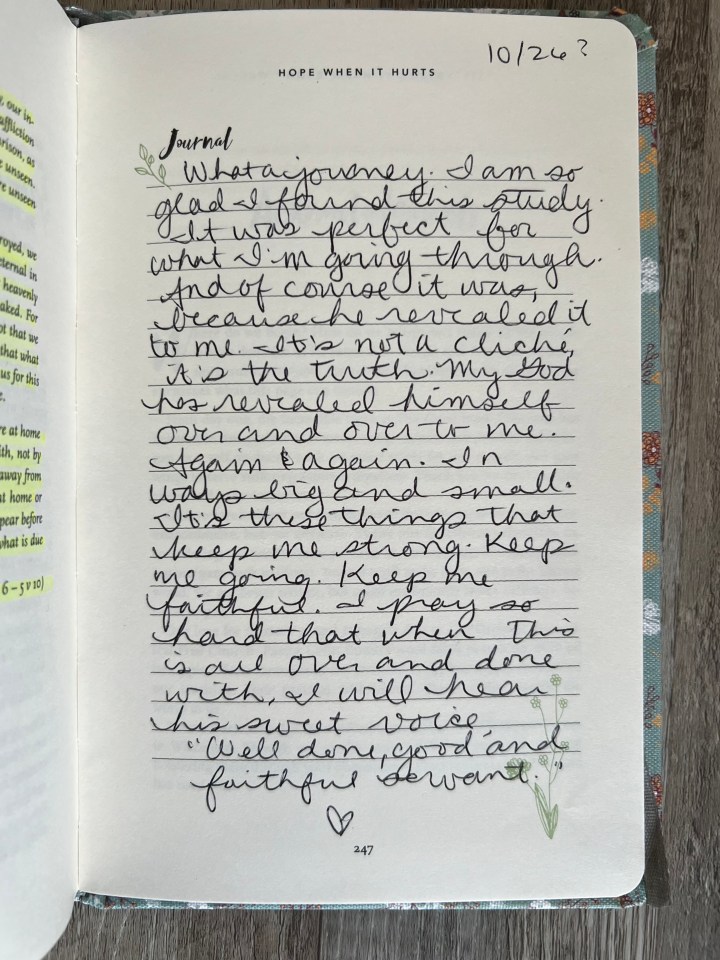 , our in-
affliction
rison, as
e unseen.
re unseen
royed, we
eternal in
heavenly
aked. For
ot that we
that what
us for this
e.
re at home
ith, not by
away from
at home or
pear before
what is due
6 – 5 v 10)
10/26?
HOPE WHEN IT HURTS
Journal
What a journey. I am so
glad I found this study.
It was perfect for
what I'm going through.
And of course it was,
because he revealed it
to me. It's not a cliché,
it's the truth. My God
has revealed himself
over and over to me.
Again & again. In
ways big and small.
It's these things that
keep me strong. Keep
me going. Keep me
faithful. I pray so
hard that when This
is all over and done
with, I will hear
his sweet voice
"Well done, good and
faithful servant."
247